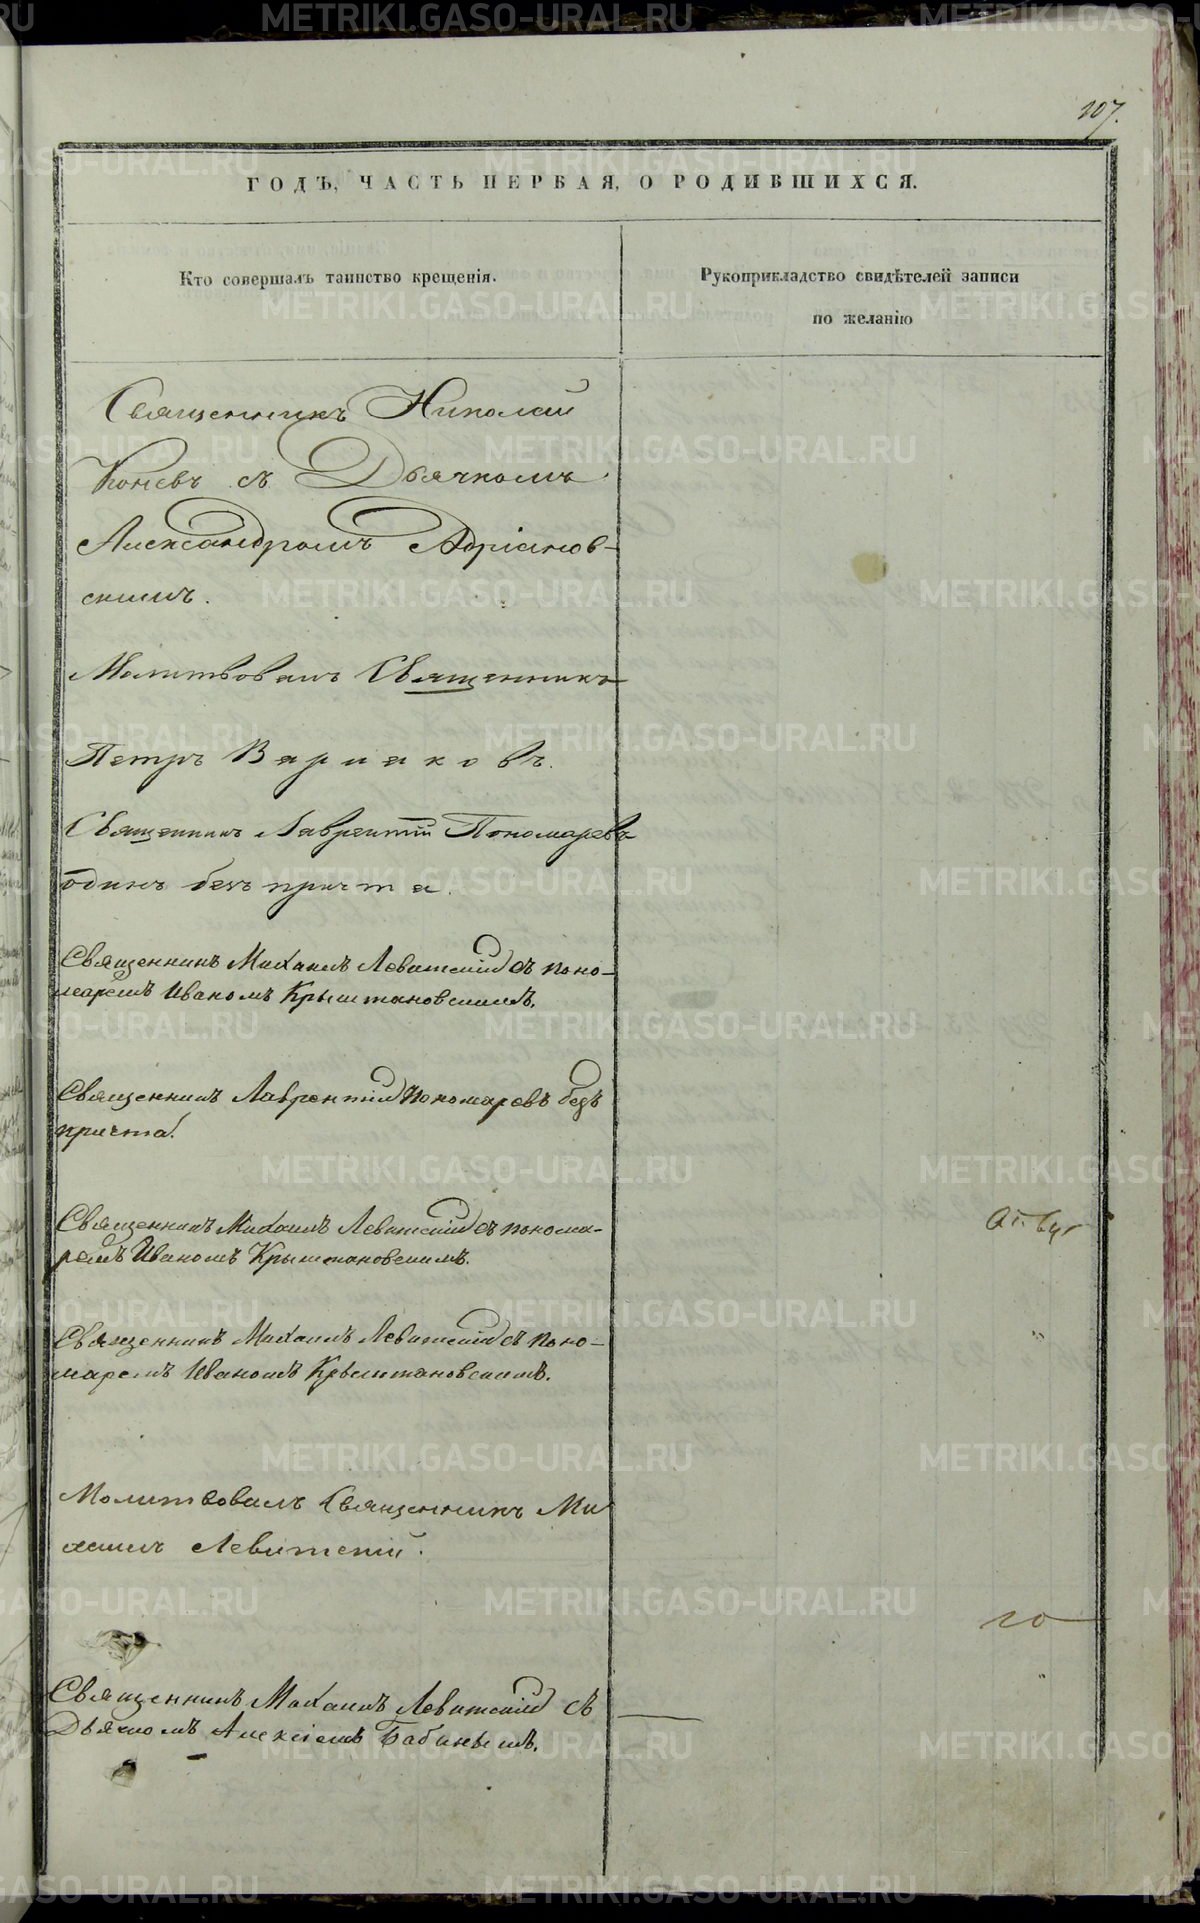 107.
ГОДЪ, ЧАСТЬ ПЕРВАЯ, О РОДИВШИХСЯ.
Кто совершалъ таинство крещенія.
Рукоприкладство свидѣтелей записи
по желанію
Священникъ Николай
Коневъ съ Дьячкомъ
Александромъ Адріанов-
скимъ.
Молитвовалъ Священникъ
Петръ Варушковъ.
Священникъ Лаврентій Пономаревъ
одинъ безъ причта.
Священникъ Михаилъ Левитскій съ поно-
маремъ Иваномъ Крыштановскимъ.
Священникъ Лаврентій Пономаревъ безъ
причта.
Священникъ Михаилъ Левитскій съ понома-
ремъ Иваномъ Крыштановскимъ.
Священникъ Михаилъ Левитскій съ поно-
маремъ Иваномъ Крыштановскимъ.
Молитвовалъ Священникъ Ми
хаилъ Левитскій.
Священникъ Михаилъ Левитскій съ
Дьячкомъ Алексіемъ Бабинымъ.
METRIKI.GASO-URAL.RU